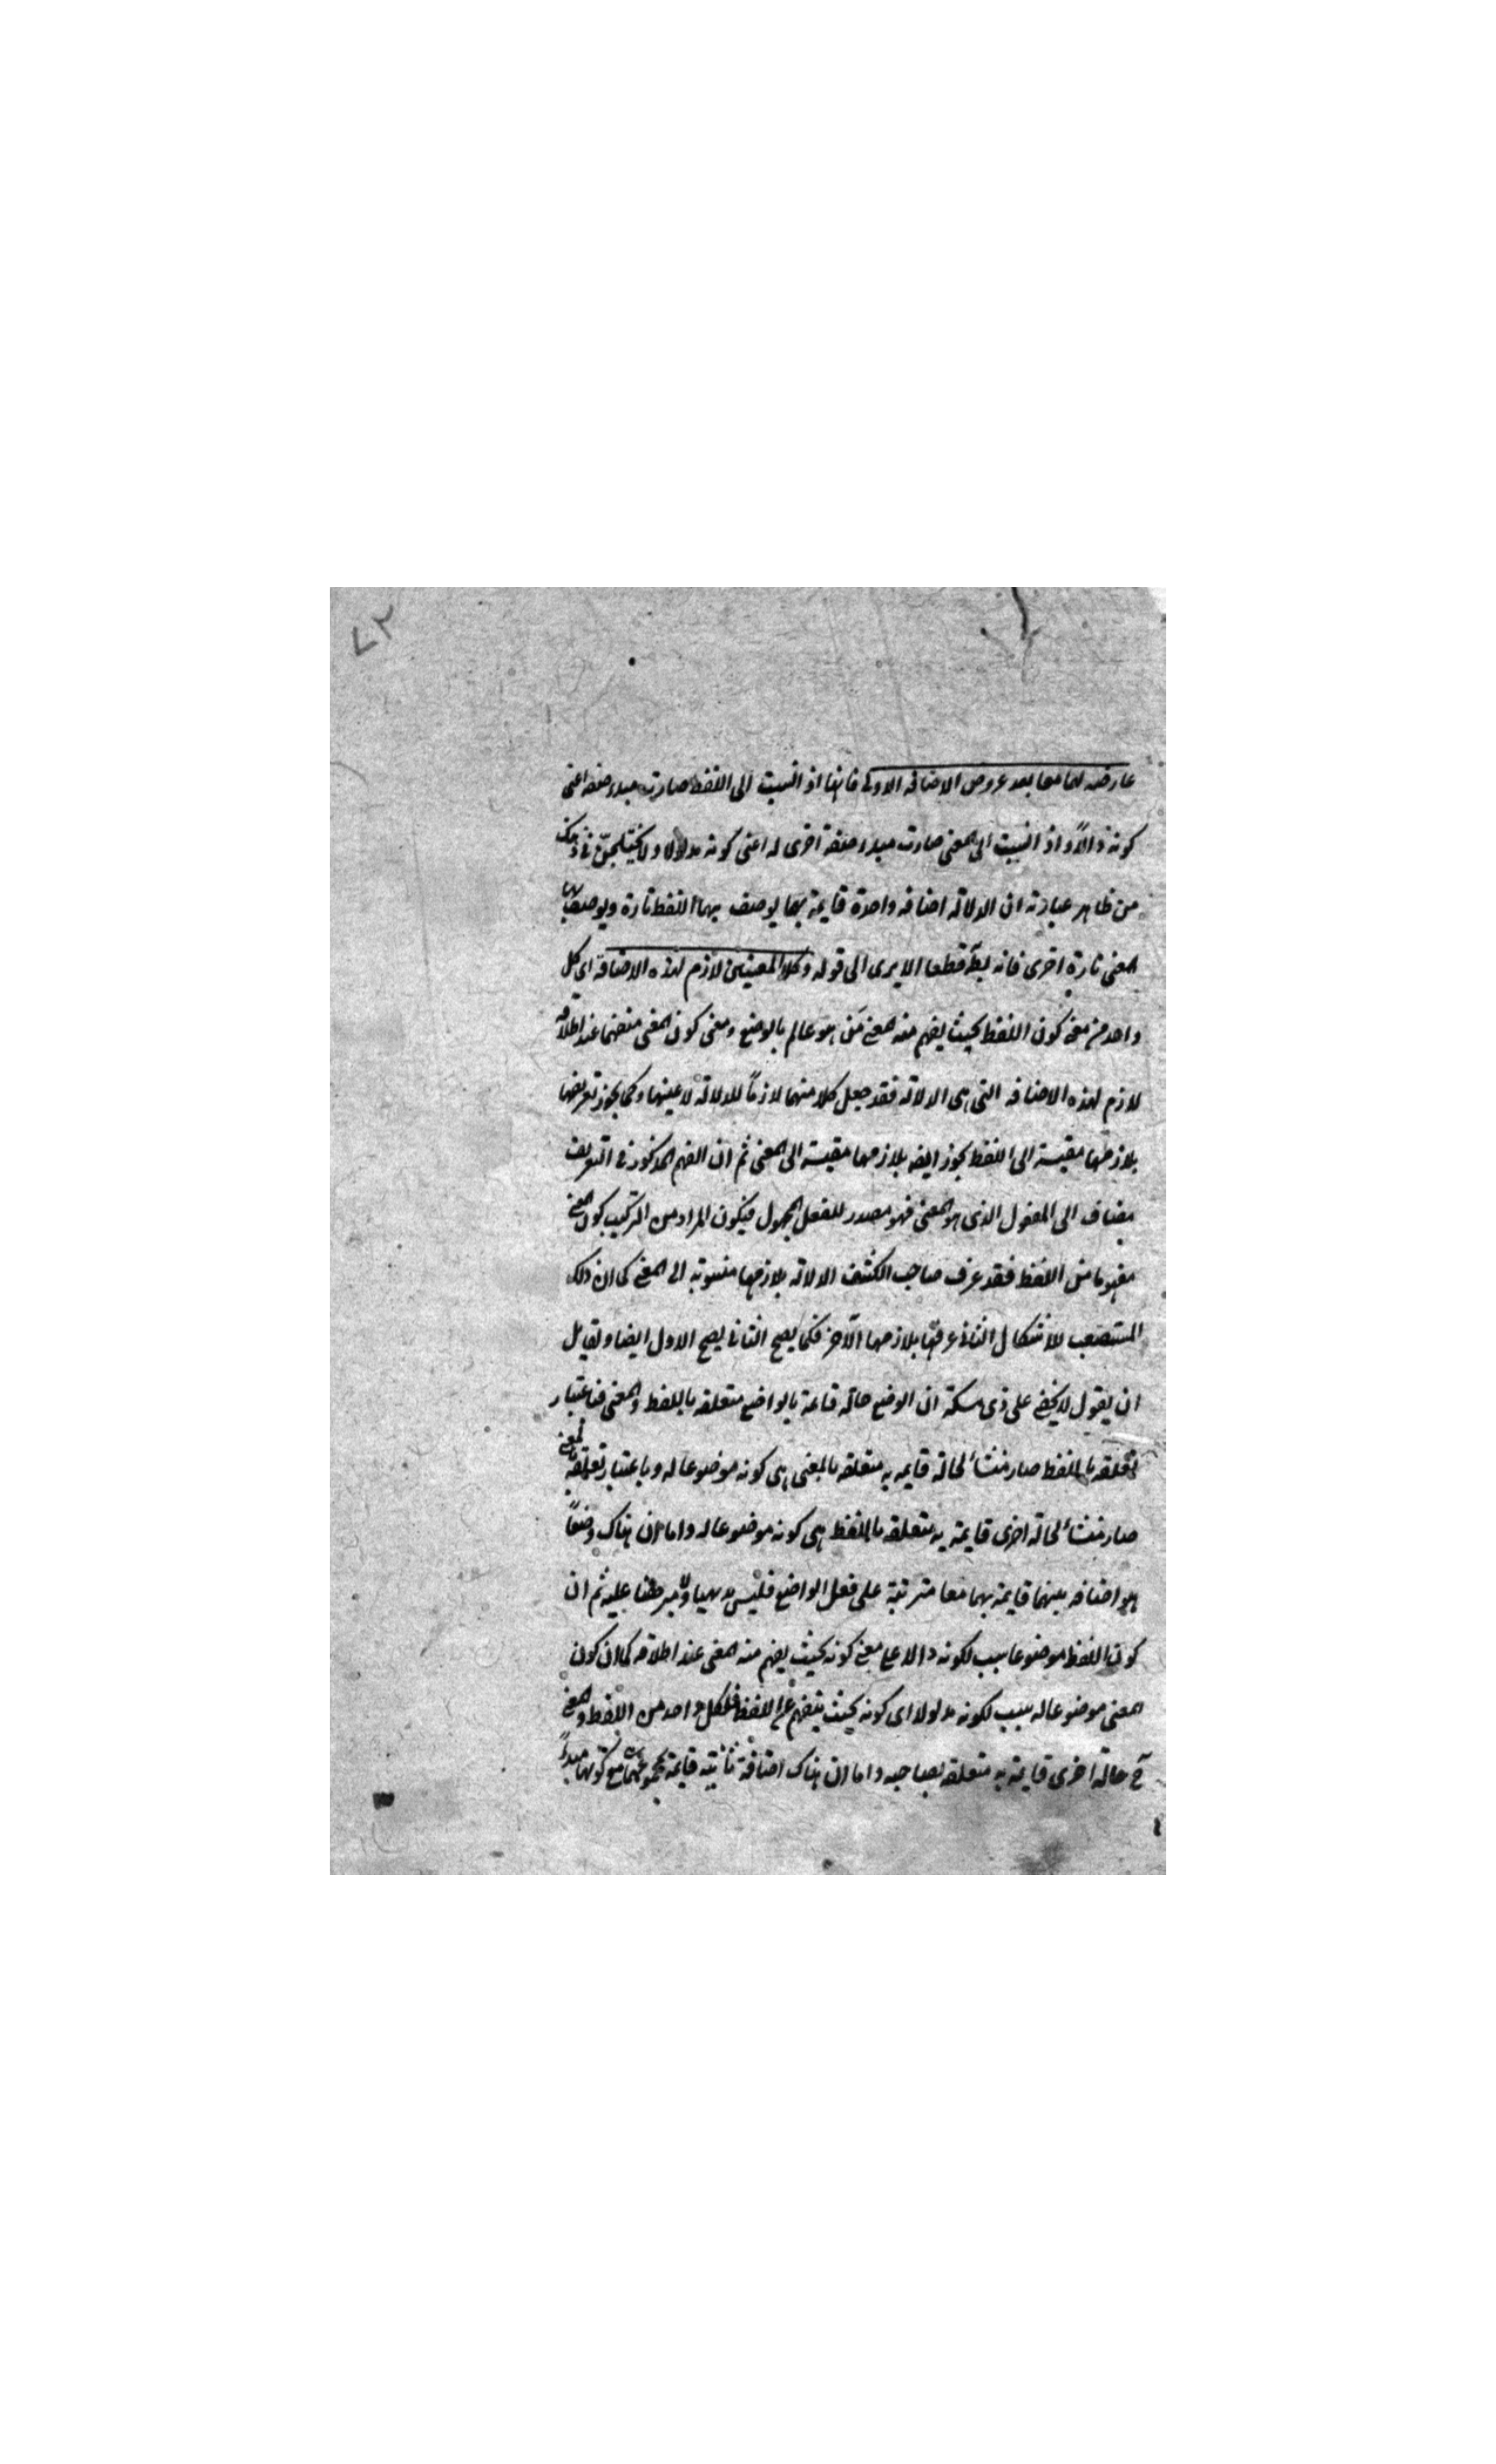 ٧٣
عارضه لهما معا بعد عروض الاضافه الاولى فانها اذ انسبت الى اللفظ صارت مبدء صفه اعنى
كونه دالًا و اذ انسبت الى المعنى صارت مبدء صفة اخرى له اعنى كونه مدلولا و لا يختلجنّ فى ذهنك
من ظاهر عبارته ان الدلالة اضافه واحدة قايمة بهما يوصف بها اللفظ تارة ويوصف بها
المعنى تارة اخرى فانه بط قطعا الا يرى الى قوله وكلا المعينين لازم لهذه الاضافة اى كل
واحد من معنى كون اللفظ بحيث يفهم منه المعنى مَن هو عالم بالوضع ومعنى كون المعنى منفهما عند اطلاقه
لازم لهذه الاضافه التى هى الدلالة فقد جعل كلا منهما لازمًا للدلالة لا عينها وكما يجوز تعريفها
بلازمها مقيسة الى اللفظ يجوز ايضه بلازمها مقيسة الى المعنى ثم ان الفهم المذكور فى التعريف
مضاف الى المفعول الذى هو المعنى فهو مصدر للفعل المجهول فيكون المراد من التركيب كون المعنى
مفهوما من اللفظ فقد عرف صاحب الكشف الدلالة بلازمها منسوبة الى المعنى كما ان ذلك
المستصعب للاشكال الثانى عرفها بلازمها الآخر فكما يصح الثانى يصح الاول ايضا ولقايل
ان يقول لا يخفى على ذى مسكة ان الوضع حالة قائمة بالواضع متعلقه باللفظ والمعنى فباعتبار
تعلقه باللفظ صار منشأ لحالة قايمه به متعلقه بالمعنى هى كونه موضوعا له وباعتبار تعلقه بالمعنى
صار منشأ لحالة اخرى قايمة به متعلقه باللفظ هى كونه موضوعا له واما ان هناك وضعًا
هو اضافه بينهما قايمة بهما معا مترتبة على فعل الواضع فليس بديهيا ولا مبرهنا عليه ثم ان
كون اللفظ موضوعا سبب لكونه دالا على معنى كونه بحيث يفهم منه المعنى عند اطلاقه كما ان كون
المعنى موضوعا له سبب لكونه مدلولا اى كونه بحيث ينفهم من اللفظ فلكل واحد من اللفظ والمعنى
ح حالة اخرى قايمة به متعلقه بصاحبه واما ان هناك اضافة ثانيته قايمة بمجموعهما مع كونها مبدءً